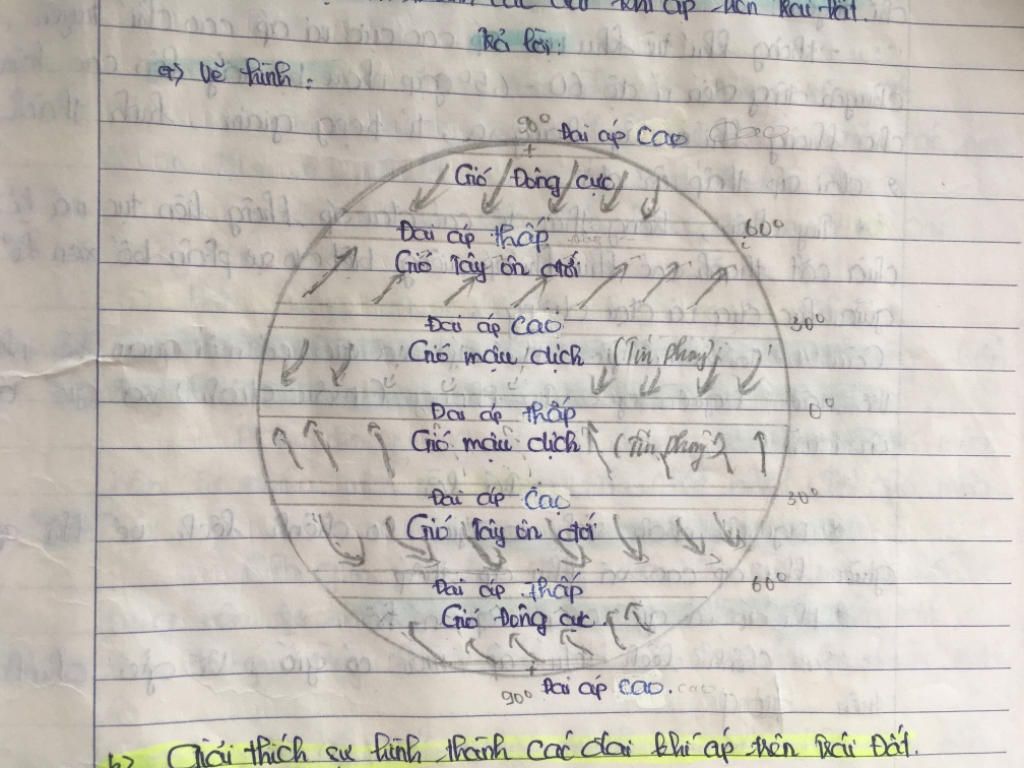 các đai khí áp trên Trái Đất.
Trả lời:
a) Vẽ hình:
90° Đai áp cao
Gió Đông cực
Đai áp thấp 60°
Gió Tây ôn đới
Đai áp cao 30°
Gió mậu dịch (Tín phong)
Đai áp thấp 0°
Gió mậu dịch (Tín phong)
Đai áp cao 30°
Gió Tây ôn đới
Đai áp thấp 60°
Gió Đông cực
90° Đai áp cao.
b) Giải thích sự hình thành các đai khí áp trên Trái Đất.